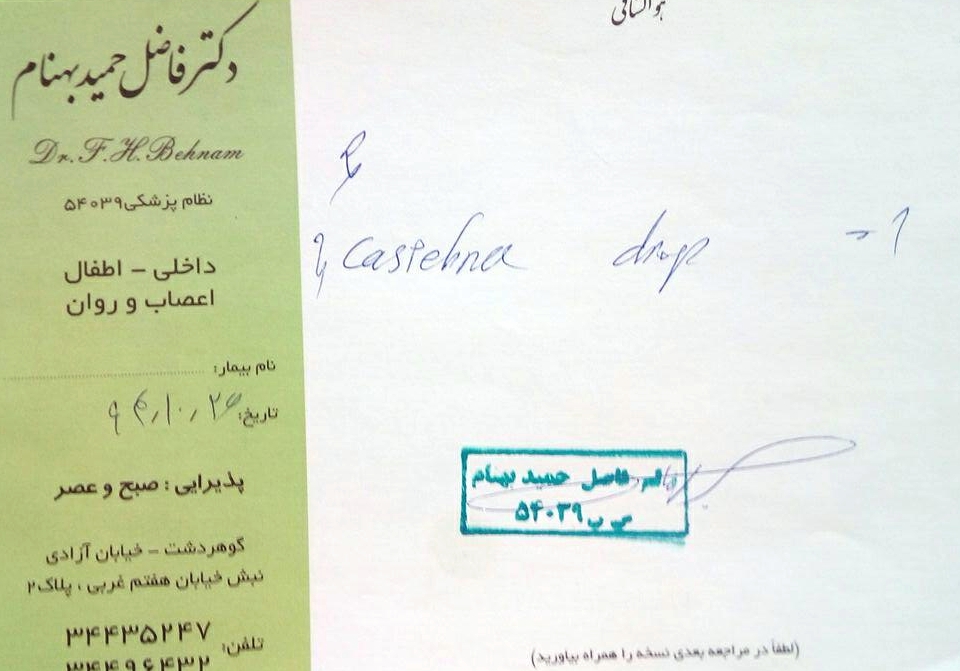 هوالشافی
دکتر فاضل حمید بهنام
Dr. F. H. Behnam
نظام پزشکی ۵۴۰۳۹
داخلی - اطفال
اعصاب و روان
نام بیمار:
تاریخ:
پذیرایی : صبح و عصر
گوهردشت - خیابان آزادی
نبش خیابان هفتم غربی ، پلاک ۲
تلفن: ۳۴۴۳۵۲۴۷
drop
فاضل حمید بهنام
۵۴۰۳۹
(لطفاً در مراجعه بعدی نسخه را همراه بیاورید)